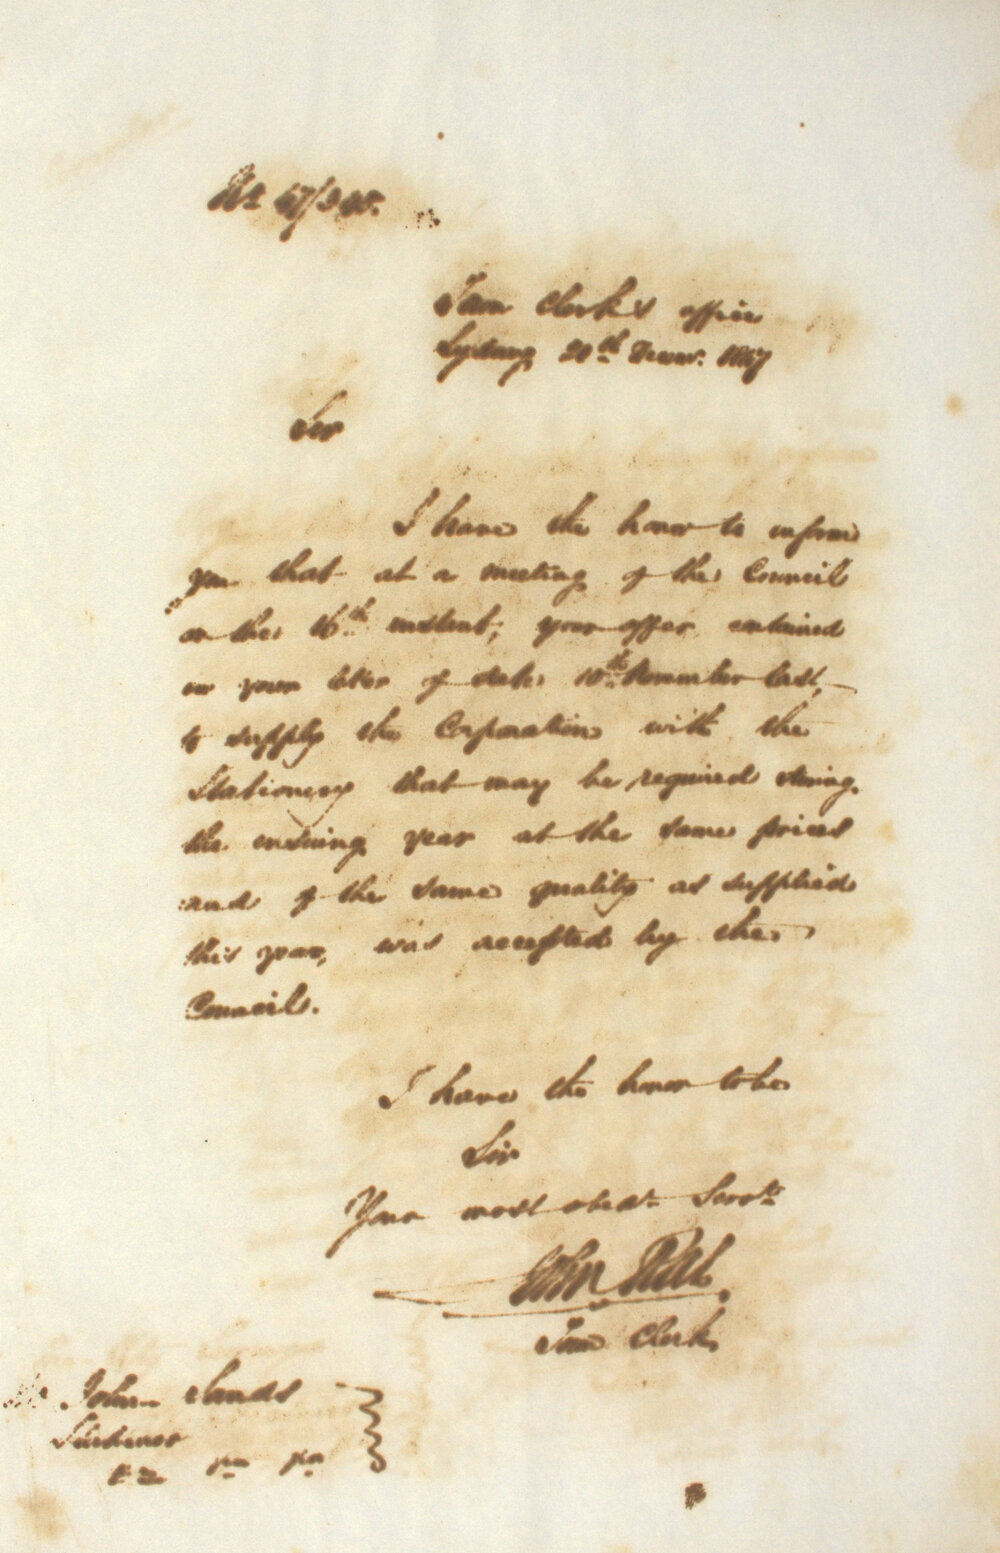 No. 47/
Town Clerk's office
Sydney 20th Decr. 1847
Sir
I have the honor to inform
you that at a meeting of the Council
on the 16th instant, your offer contained
in your letter of date 10th November last,
to supply the Corporation with the
Stationery that may be required during
the ensuing year at the same prices
and of the same quality as supplied
this year, was accepted by the
Council.
I have the honor to be
Sir
Your most obedt. Servt.
Town Clerk
Mr John Sands
Stationer